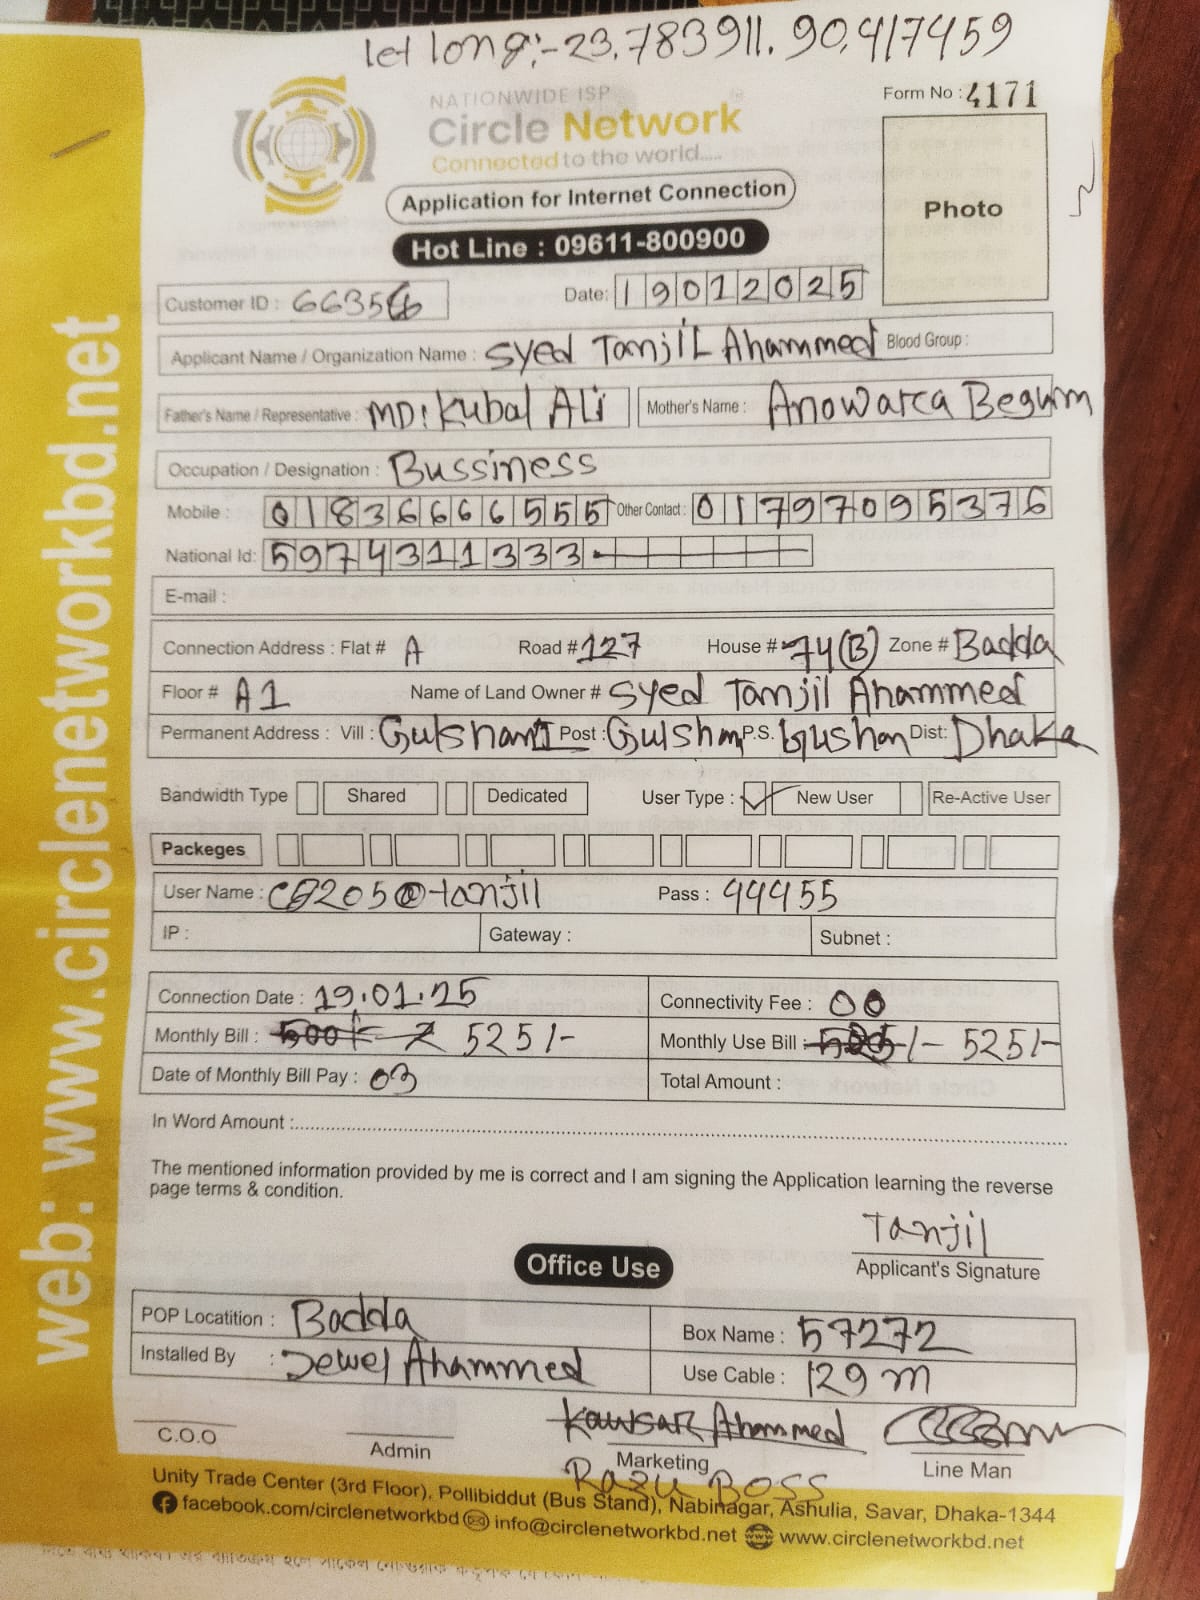 let long:-23.783911. 90.417459
NATIONWIDE ISP
Circle Network
Connected to the world.....
Form No : 4171
Application for Internet Connection
Photo
Hot Line : 09611-800900
Customer ID : 66356
Date: 19012025
Applicant Name / Organization Name : Syed Tanjil Ahammed Blood Group :
Father's Name / Representative : MD: Kubal Ali Mother's Name : Anowarca Begum
Occupation / Designation : Bussiness
Mobile : 01836666555 Other Contact : 01797095376
National Id: 5974311333
E-mail :
Connection Address : Flat # A Road # 127 House # 74(B) Zone # Badda
Floor # A1 Name of Land Owner # Syed Tanjil Ahammed
Permanent Address : Vill : Gulshan1 Post : Gulshan P.S. Gushan Dist: Dhaka
Bandwidth Type Shared Dedicated User Type : New User Re-Active User
Packeges
User Name : C8205@tanjil Pass : 44455
IP : Gateway : Subnet :
Connection Date : 19.01.25 Connectivity Fee : 00
Monthly Bill : 500 525/- Monthly Use Bill : /- 525/-
Date of Monthly Bill Pay : 03 Total Amount :
In Word Amount :
The mentioned information provided by me is correct and I am signing the Application learning the reverse
page terms & condition.
Tanjil
Applicant's Signature
Office Use
POP Locatition : Badda Box Name : 57272
Installed By : Jewel Ahammed Use Cable : 129 m
Kawsar Ahammed
C.O.O Admin Marketing Line Man
Razu Boss
Unity Trade Center (3rd Floor), Pollibiddut (Bus Stand), Nabinagar, Ashulia, Savar, Dhaka-1344
facebook.com/circlenetworkbd info@circlenetworkbd.net www.circlenetworkbd.net
web: www.circlenetworkbd.net